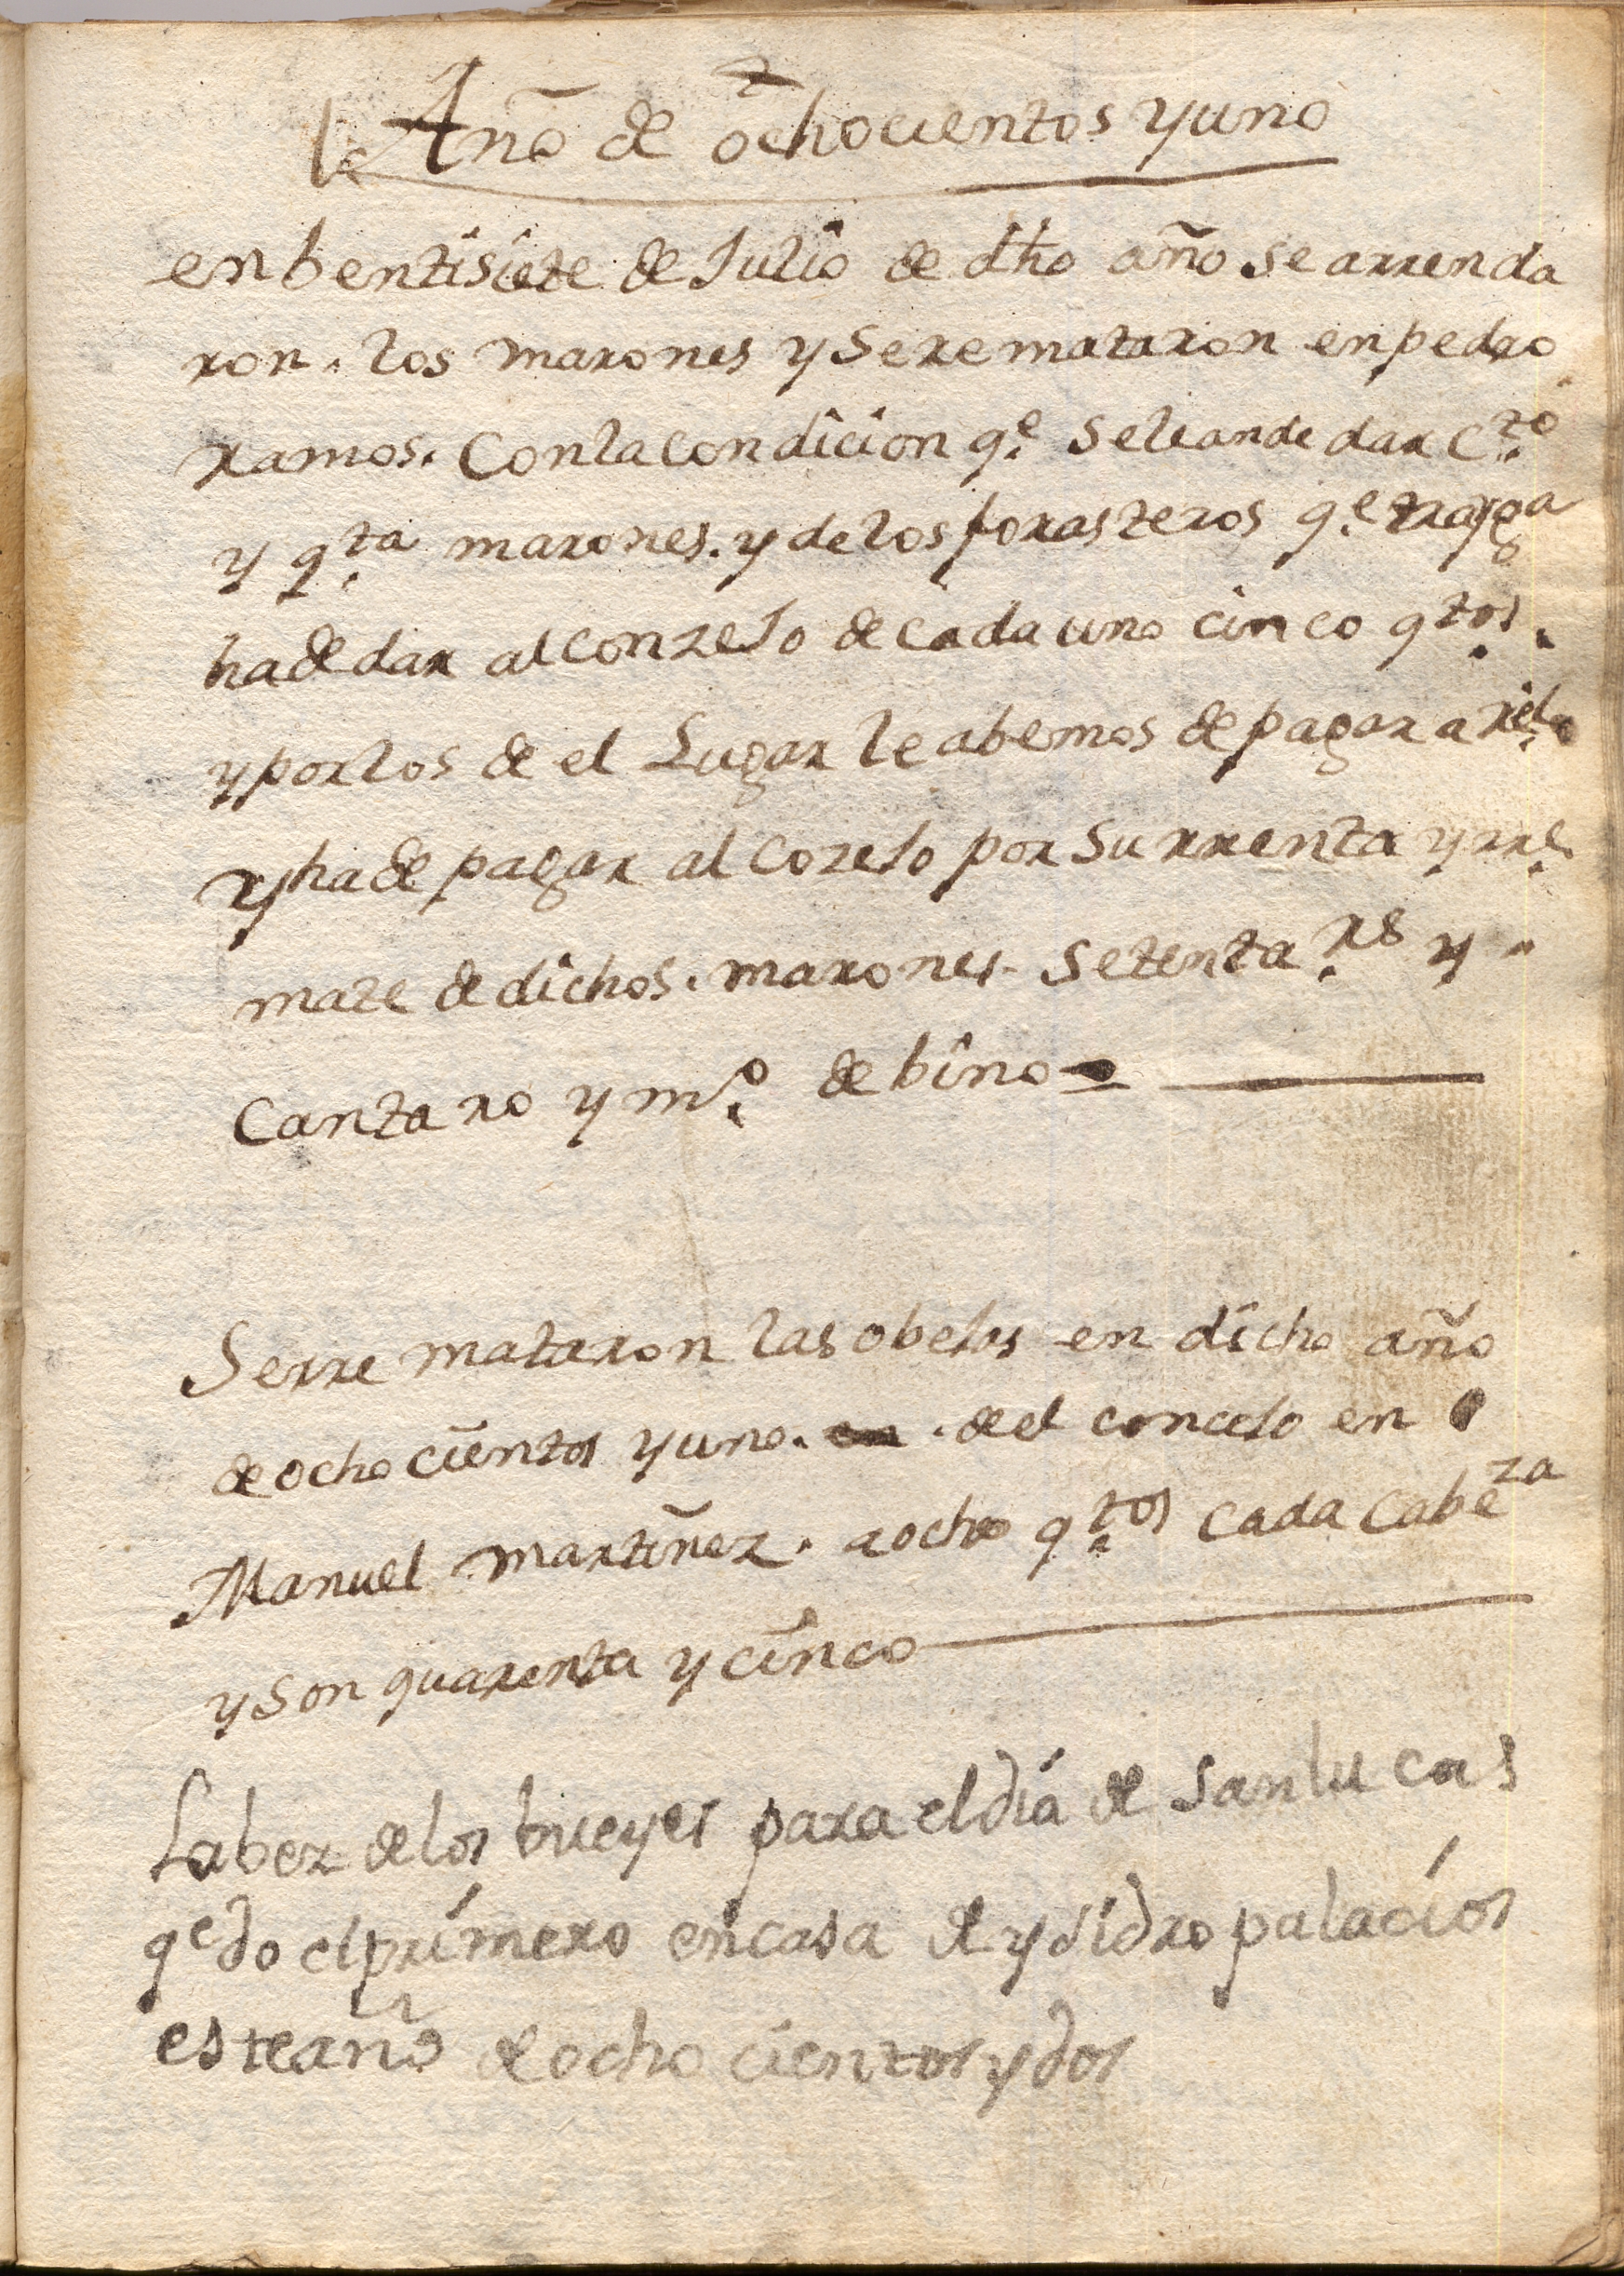 Año de ochocientos y uno
en bentisiete de Julio de dho año se arrenda
ron. los marones y se remataron en pedro
ramos. Con la condicion q.e se le an de dar c.to
y q.ta marones. y de los forasteros q.e trayga
ha de dar al conzeJo de cada uno cinco q.tos.
y por los de el Lugar le abemos de pagar a
y ha de pagar al cozeJo por su rrenta y rre.
mate de dichos. marones. setenta rs y
Cantaro y m.o de bino
Serremataron las obeJas en dicho año
de ochocientos y uno. . de el conceJo en
Manuel martinez. a ocho q.tos cada cabeza
y son quarenta y cinco
La bez de los bueyes para el dia de san lucas
q.edo el primero en casa de ysidro palacios
este año de ochocientos y dos